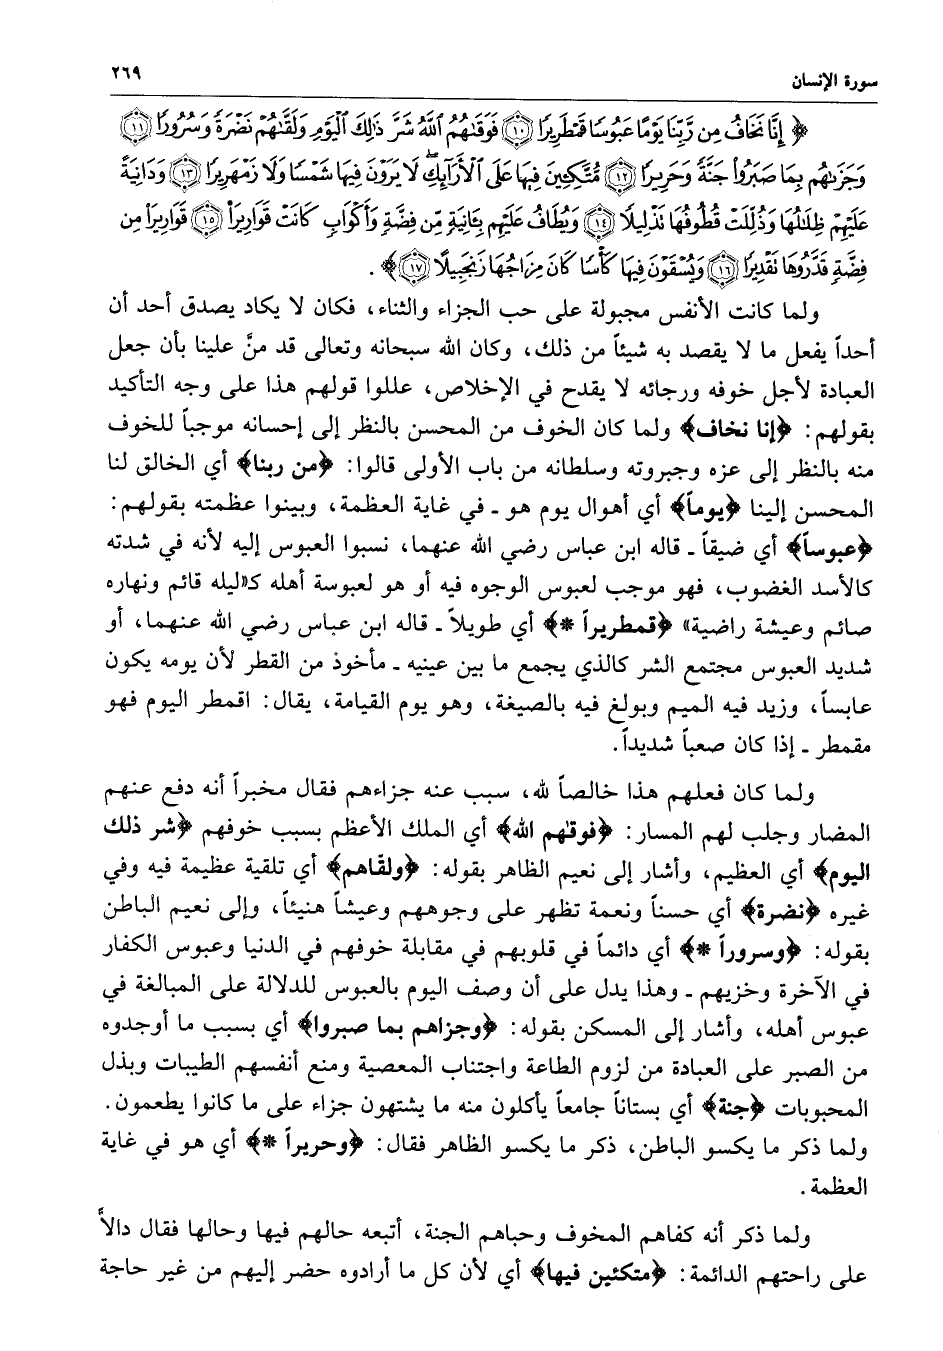 سورة الإنسان ٢٦٩
﴿ إِنَّا نَخَافُ مِن رَّبِّنَا يَوْمًا عَبُوسًا قَمْطَرِيرًا ﴿١٠﴾ فَوَقَىٰهُمُ ٱللَّهُ شَرَّ ذَٰلِكَ ٱلْيَوْمِ وَلَقَّىٰهُمْ نَضْرَةً وَسُرُورًا ﴿١١﴾
وَجَزَىٰهُم بِمَا صَبَرُوا۟ جَنَّةً وَحَرِيرًا ﴿١٢﴾ مُّتَّكِـِٔينَ فِيهَا عَلَى ٱلْأَرَآئِكِ ۖ لَا يَرَوْنَ فِيهَا شَمْسًا وَلَا زَمْهَرِيرًا ﴿١٣﴾ وَدَانِيَةً
عَلَيْهِمْ ظِلَٰلُهَا وَذُلِّلَتْ قُطُوفُهَا تَذْلِيلًا ﴿١٤﴾ وَيُطَافُ عَلَيْهِم بِـَٔانِيَةٍ مِّن فِضَّةٍ وَأَكْوَابٍ كَانَتْ قَوَارِيرَا۠ ﴿١٥﴾ قَوَارِيرَا۟ مِن
فِضَّةٍ قَدَّرُوهَا تَقْدِيرًا ﴿١٦﴾ وَيُسْقَوْنَ فِيهَا كَأْسًا كَانَ مِزَاجُهَا زَنجَبِيلًا ﴿١٧﴾ ﴾ .
ولما كانت الأنفس مجبولة على حب الجزاء والثناء، فكان لا يكاد يصدق أحد أن
أحداً يفعل ما لا يقصد به شيئاً من ذلك، وكان الله سبحانه وتعالى قد منَّ علينا بأن جعل
العبادة لأجل خوفه ورجائه لا يقدح في الإخلاص، عللوا قولهم هذا على وجه التأكيد
بقولهم: ﴿إنا نخاف﴾ ولما كان الخوف من المحسن بالنظر إلى إحسانه موجباً للخوف
منه بالنظر إلى عزه وجبروته وسلطانه من باب الأولى قالوا: ﴿من ربنا﴾ أي الخالق لنا
المحسن إلينا ﴿يوماً﴾ أي أهوال يوم هو ـ في غاية العظمة، وبينوا عظمته بقولهم:
﴿عبوساً﴾ أي ضيقاً ـ قاله ابن عباس رضي الله عنهما، نسبوا العبوس إليه لأنه في شدته
كالأسد الغضوب، فهو موجب لعبوس الوجوه فيه أو هو لعبوسة أهله كـ«ليله قائم ونهاره
صائم وعيشة راضية» ﴿قمطريراً *﴾ أي طويلاً ـ قاله ابن عباس رضي الله عنهما، أو
شديد العبوس مجتمع الشر كالذي يجمع ما بين عينيه ـ مأخوذ من القطر لأن يومه يكون
عابساً، وزيد فيه الميم وبولغ فيه بالصيغة، وهو يوم القيامة، يقال: اقمطر اليوم فهو
مقمطر ـ إذا كان صعباً شديداً.
ولما كان فعلهم هذا خالصاً لله، سبب عنه جزاءهم فقال مخبراً أنه دفع عنهم
المضار وجلب لهم المسار: ﴿فوقٰهم الله﴾ أي الملك الأعظم بسبب خوفهم ﴿شر ذلك
اليوم﴾ أي العظيم، وأشار إلى نعيم الظاهر بقوله: ﴿ولقّاهم﴾ أي تلقية عظيمة فيه وفي
غيره ﴿نضرة﴾ أي حسناً ونعمة تظهر على وجوههم وعيشاً هنيئاً، وإلى نعيم الباطن
بقوله: ﴿وسروراً *﴾ أي دائماً في قلوبهم في مقابلة خوفهم في الدنيا وعبوس الكفار
في الآخرة وخزيهم ـ وهذا يدل على أن وصف اليوم بالعبوس للدلالة على المبالغة في
عبوس أهله، وأشار إلى المسكن بقوله: ﴿وجزاهم بما صبروا﴾ أي بسبب ما أوجدوه
من الصبر على العبادة من لزوم الطاعة واجتناب المعصية ومنع أنفسهم الطيبات وبذل
المحبوبات ﴿جنة﴾ أي بستاناً جامعاً يأكلون منه ما يشتهون جزاء على ما كانوا يطعمون.
ولما ذكر ما يكسو الباطن، ذكر ما يكسو الظاهر فقال: ﴿وحريراً *﴾ أي هو في غاية
العظمة.
ولما ذكر أنه كفاهم المخوف وحباهم الجنة، أتبعه حالهم فيها وحالها فقال دالاًّ
على راحتهم الدائمة: ﴿متكئين فيها﴾ أي لأن كل ما أرادوه حضر إليهم من غير حاجة